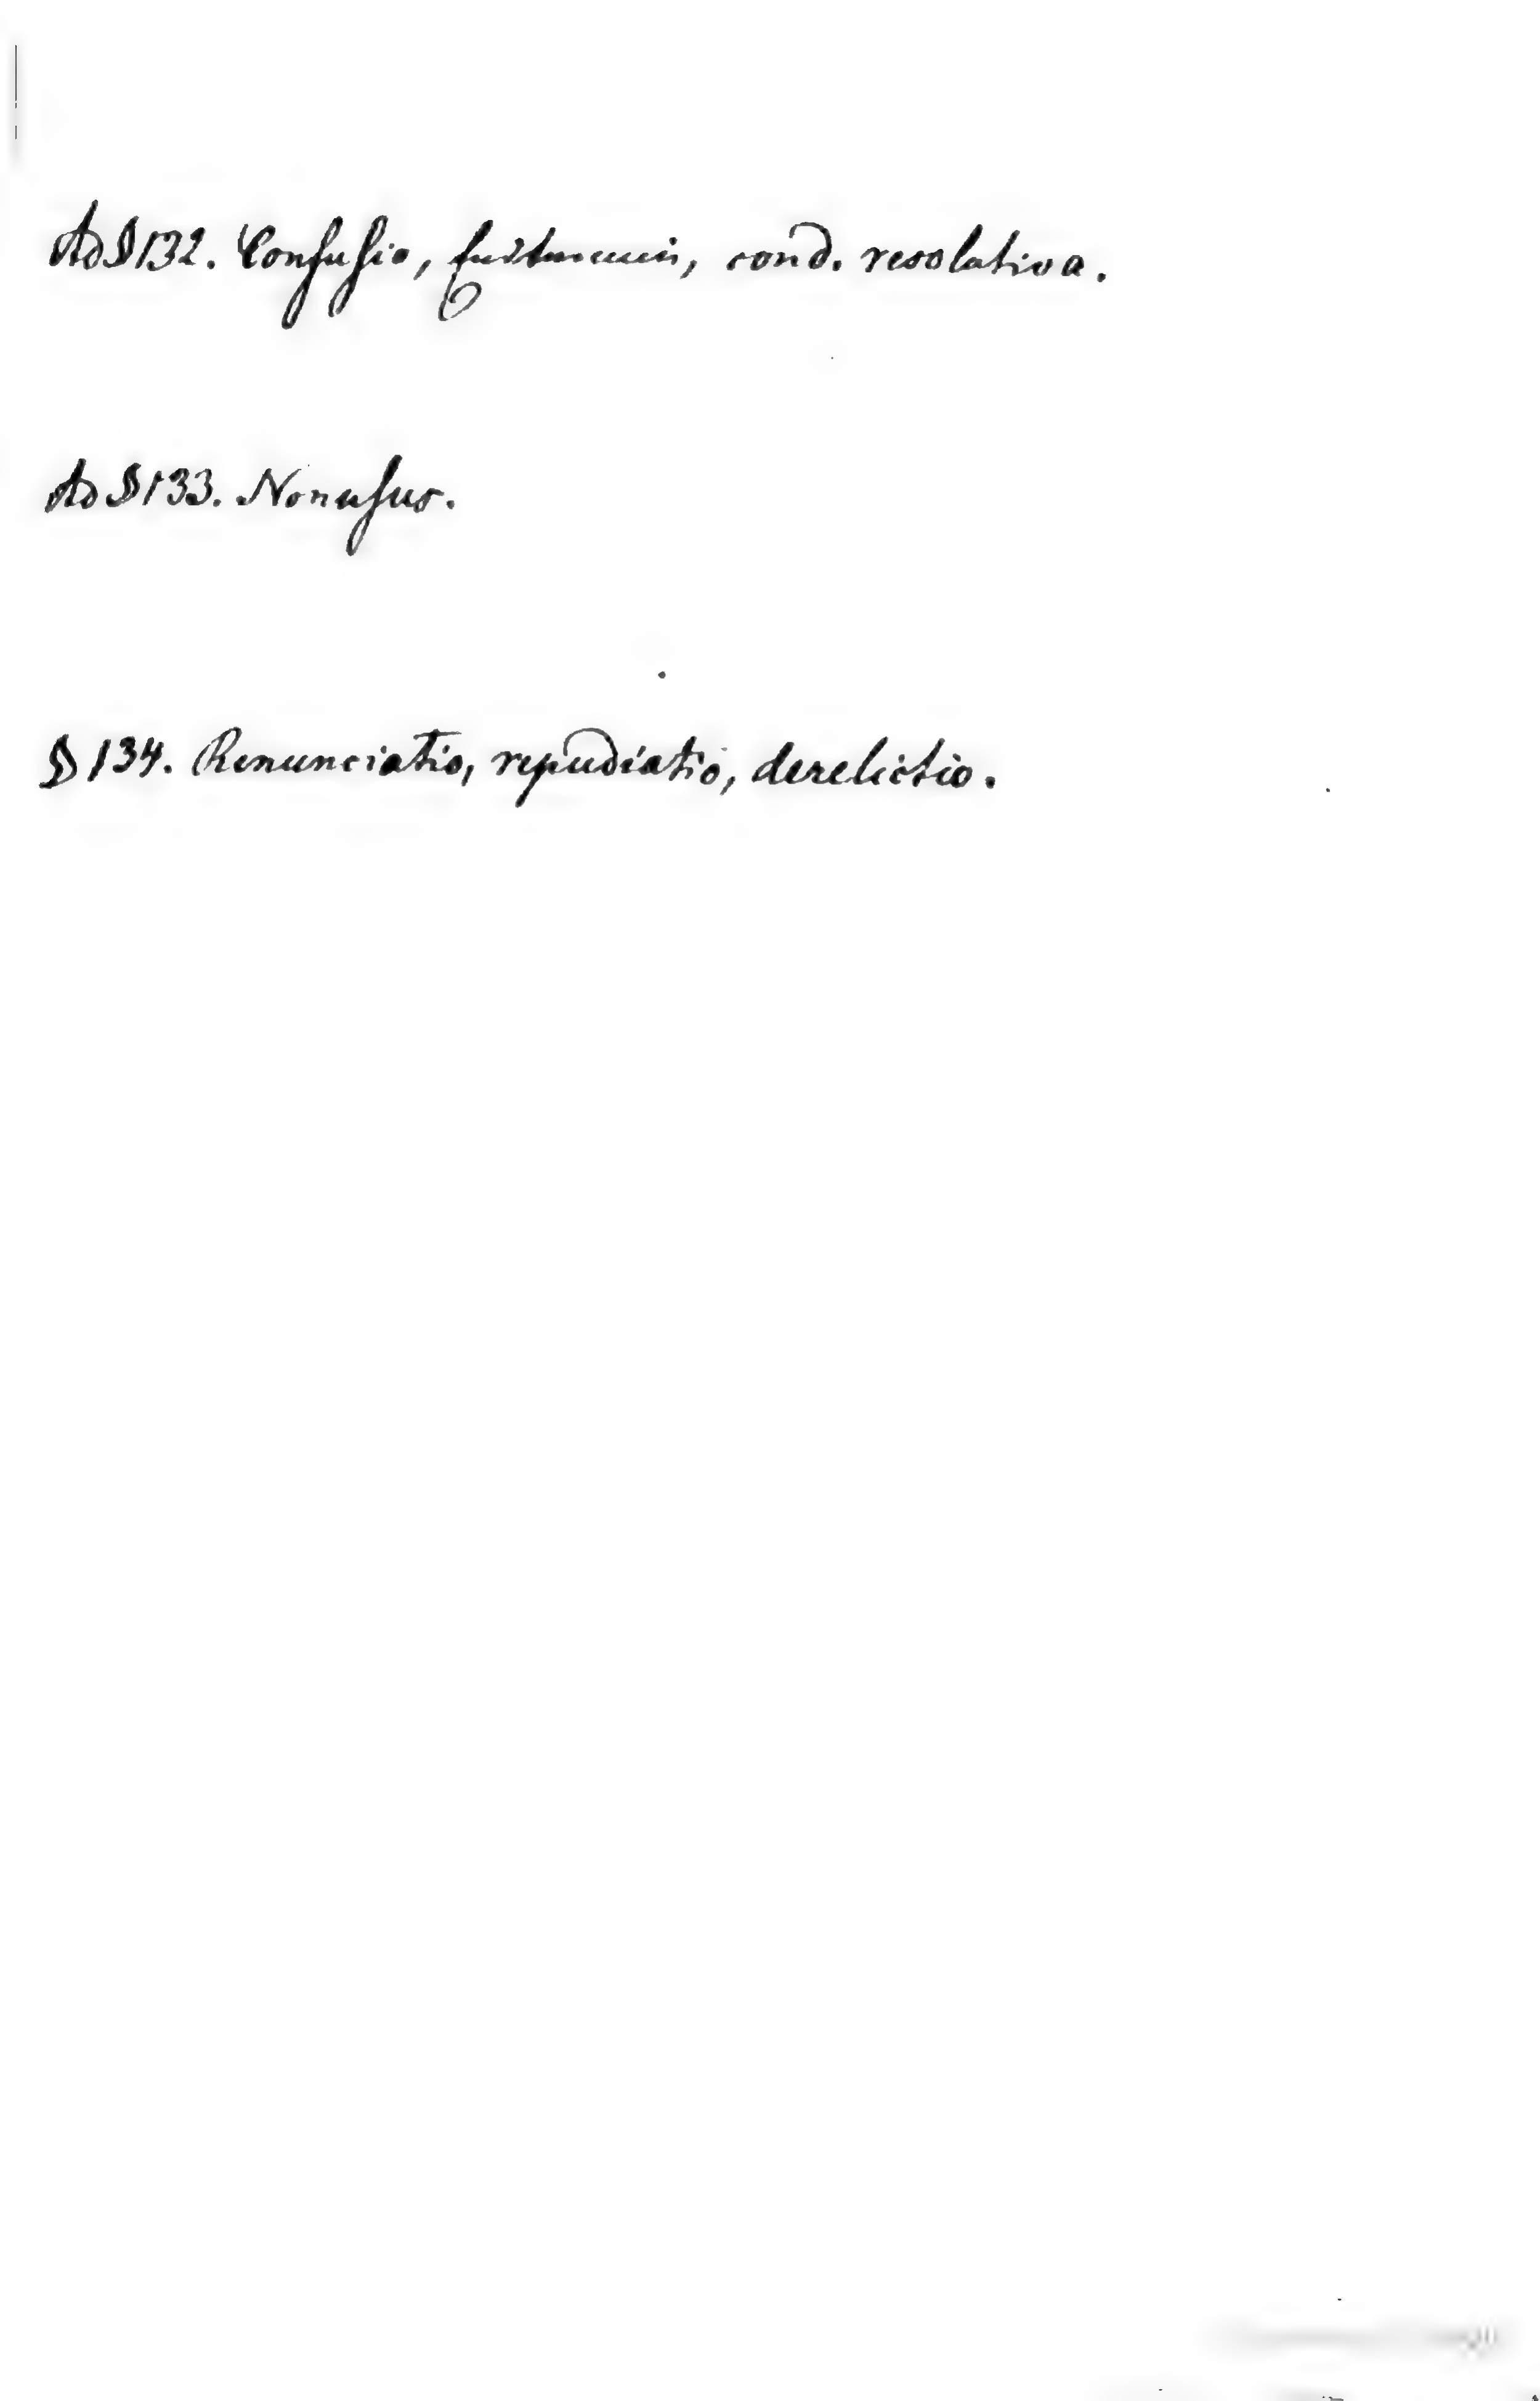 Ad § 132. Confusio, Endtermin, cond. resolutiva.
Ad § 133. Nonusus.
§ 134. Renunciatio, repudiatio, derelictio.